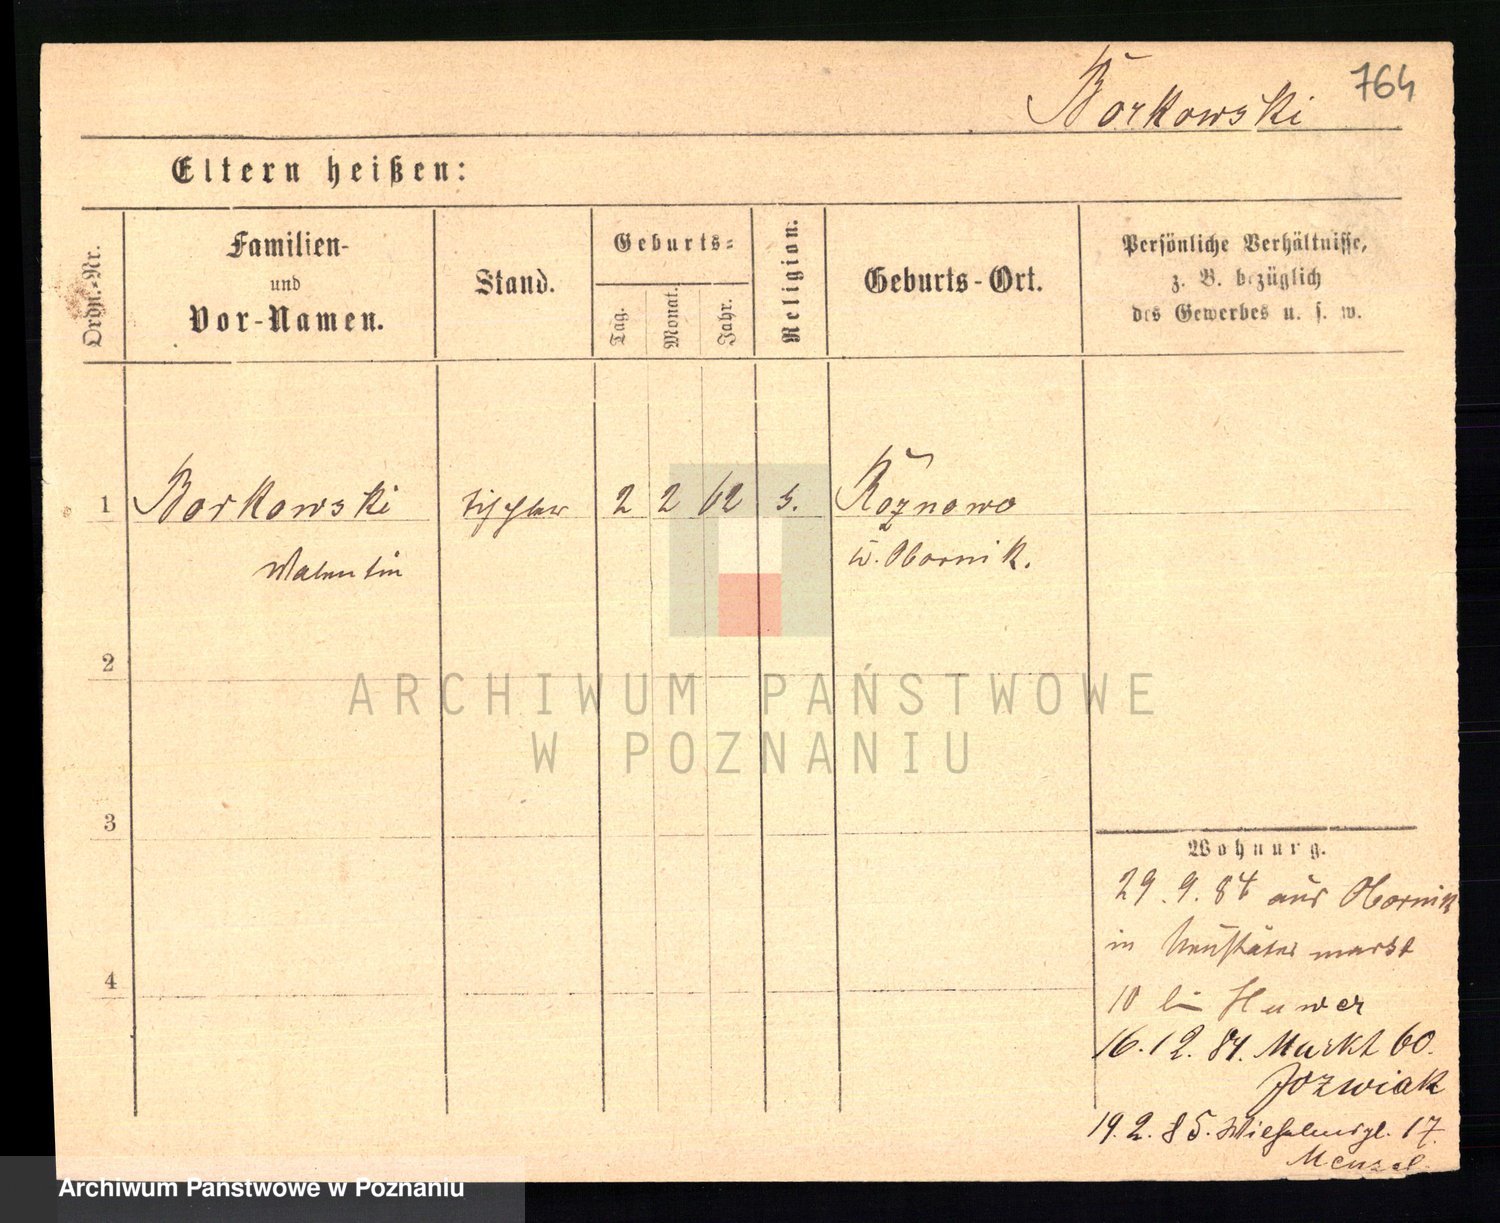 764
Borkowski
Eltern heißen:
Ordn.-Nr.
Familien-
und
Vor-Namen.
Stand.
Geburts-
Tag.
Monat.
Jahr.
Religion.
Geburts-Ort.
Persönliche Verhältnisse,
z. B. bezüglich
des Gewerbes u. s. w.
1 Borkowski Tischler 2 2 62 Rożnowo
Valentin Obornik.
2
ARCHIWUM PAŃSTWOWE
W POZNANIU
3
Wohnung.
29.9.84 aus Obornik
in markt
10 bei Huwer
4
16.12.84. Markt 60.
Jozwiak
19.2.85. 17.
Menzel
Archiwum Państwowe w Poznaniu